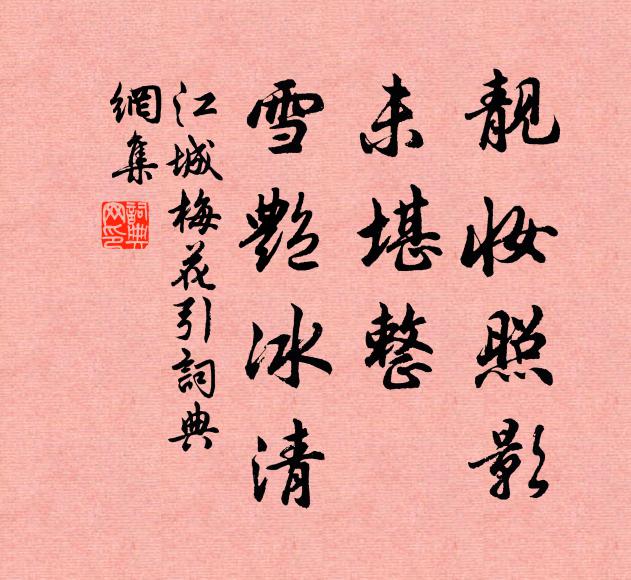 靚妝照影
未堪整
雪艷冰清
江城梅花引詞典
網集
詞典
网印